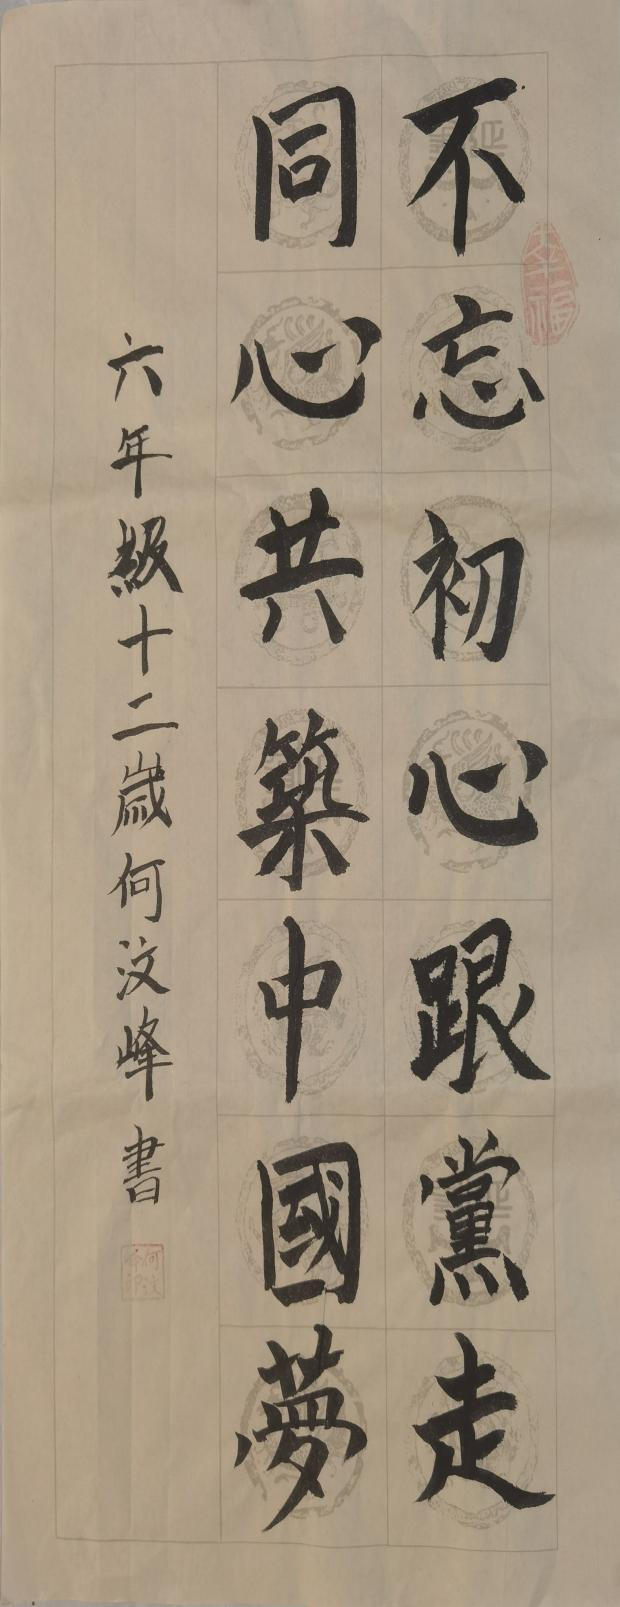 不忘初心跟黨走
同心共築中國夢
六年級十二歲何汶峰書
幸福